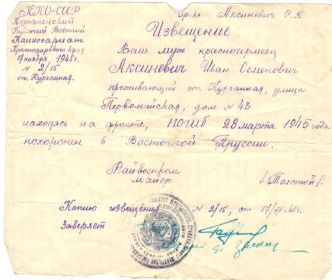 НКО-СССР
Курганенский
Районный Военный
Комиссариат
Краснодарского края
9 ноября 1945г.
N 2/15
ст. Курганная.
гр-ке Аксиневич
Извещение
Ваш муж красноармеец
Аксиневич Иван Семенович
проживающий ст. Курганная, улица
Первомайская, дом N 43
находясь на фронте, погиб 28 марта 1945 года
похоронен в Восточной Пруссии.
Райвоенком
майор /Толстой/.
Копию извещения N 2/15, от
Заверяет